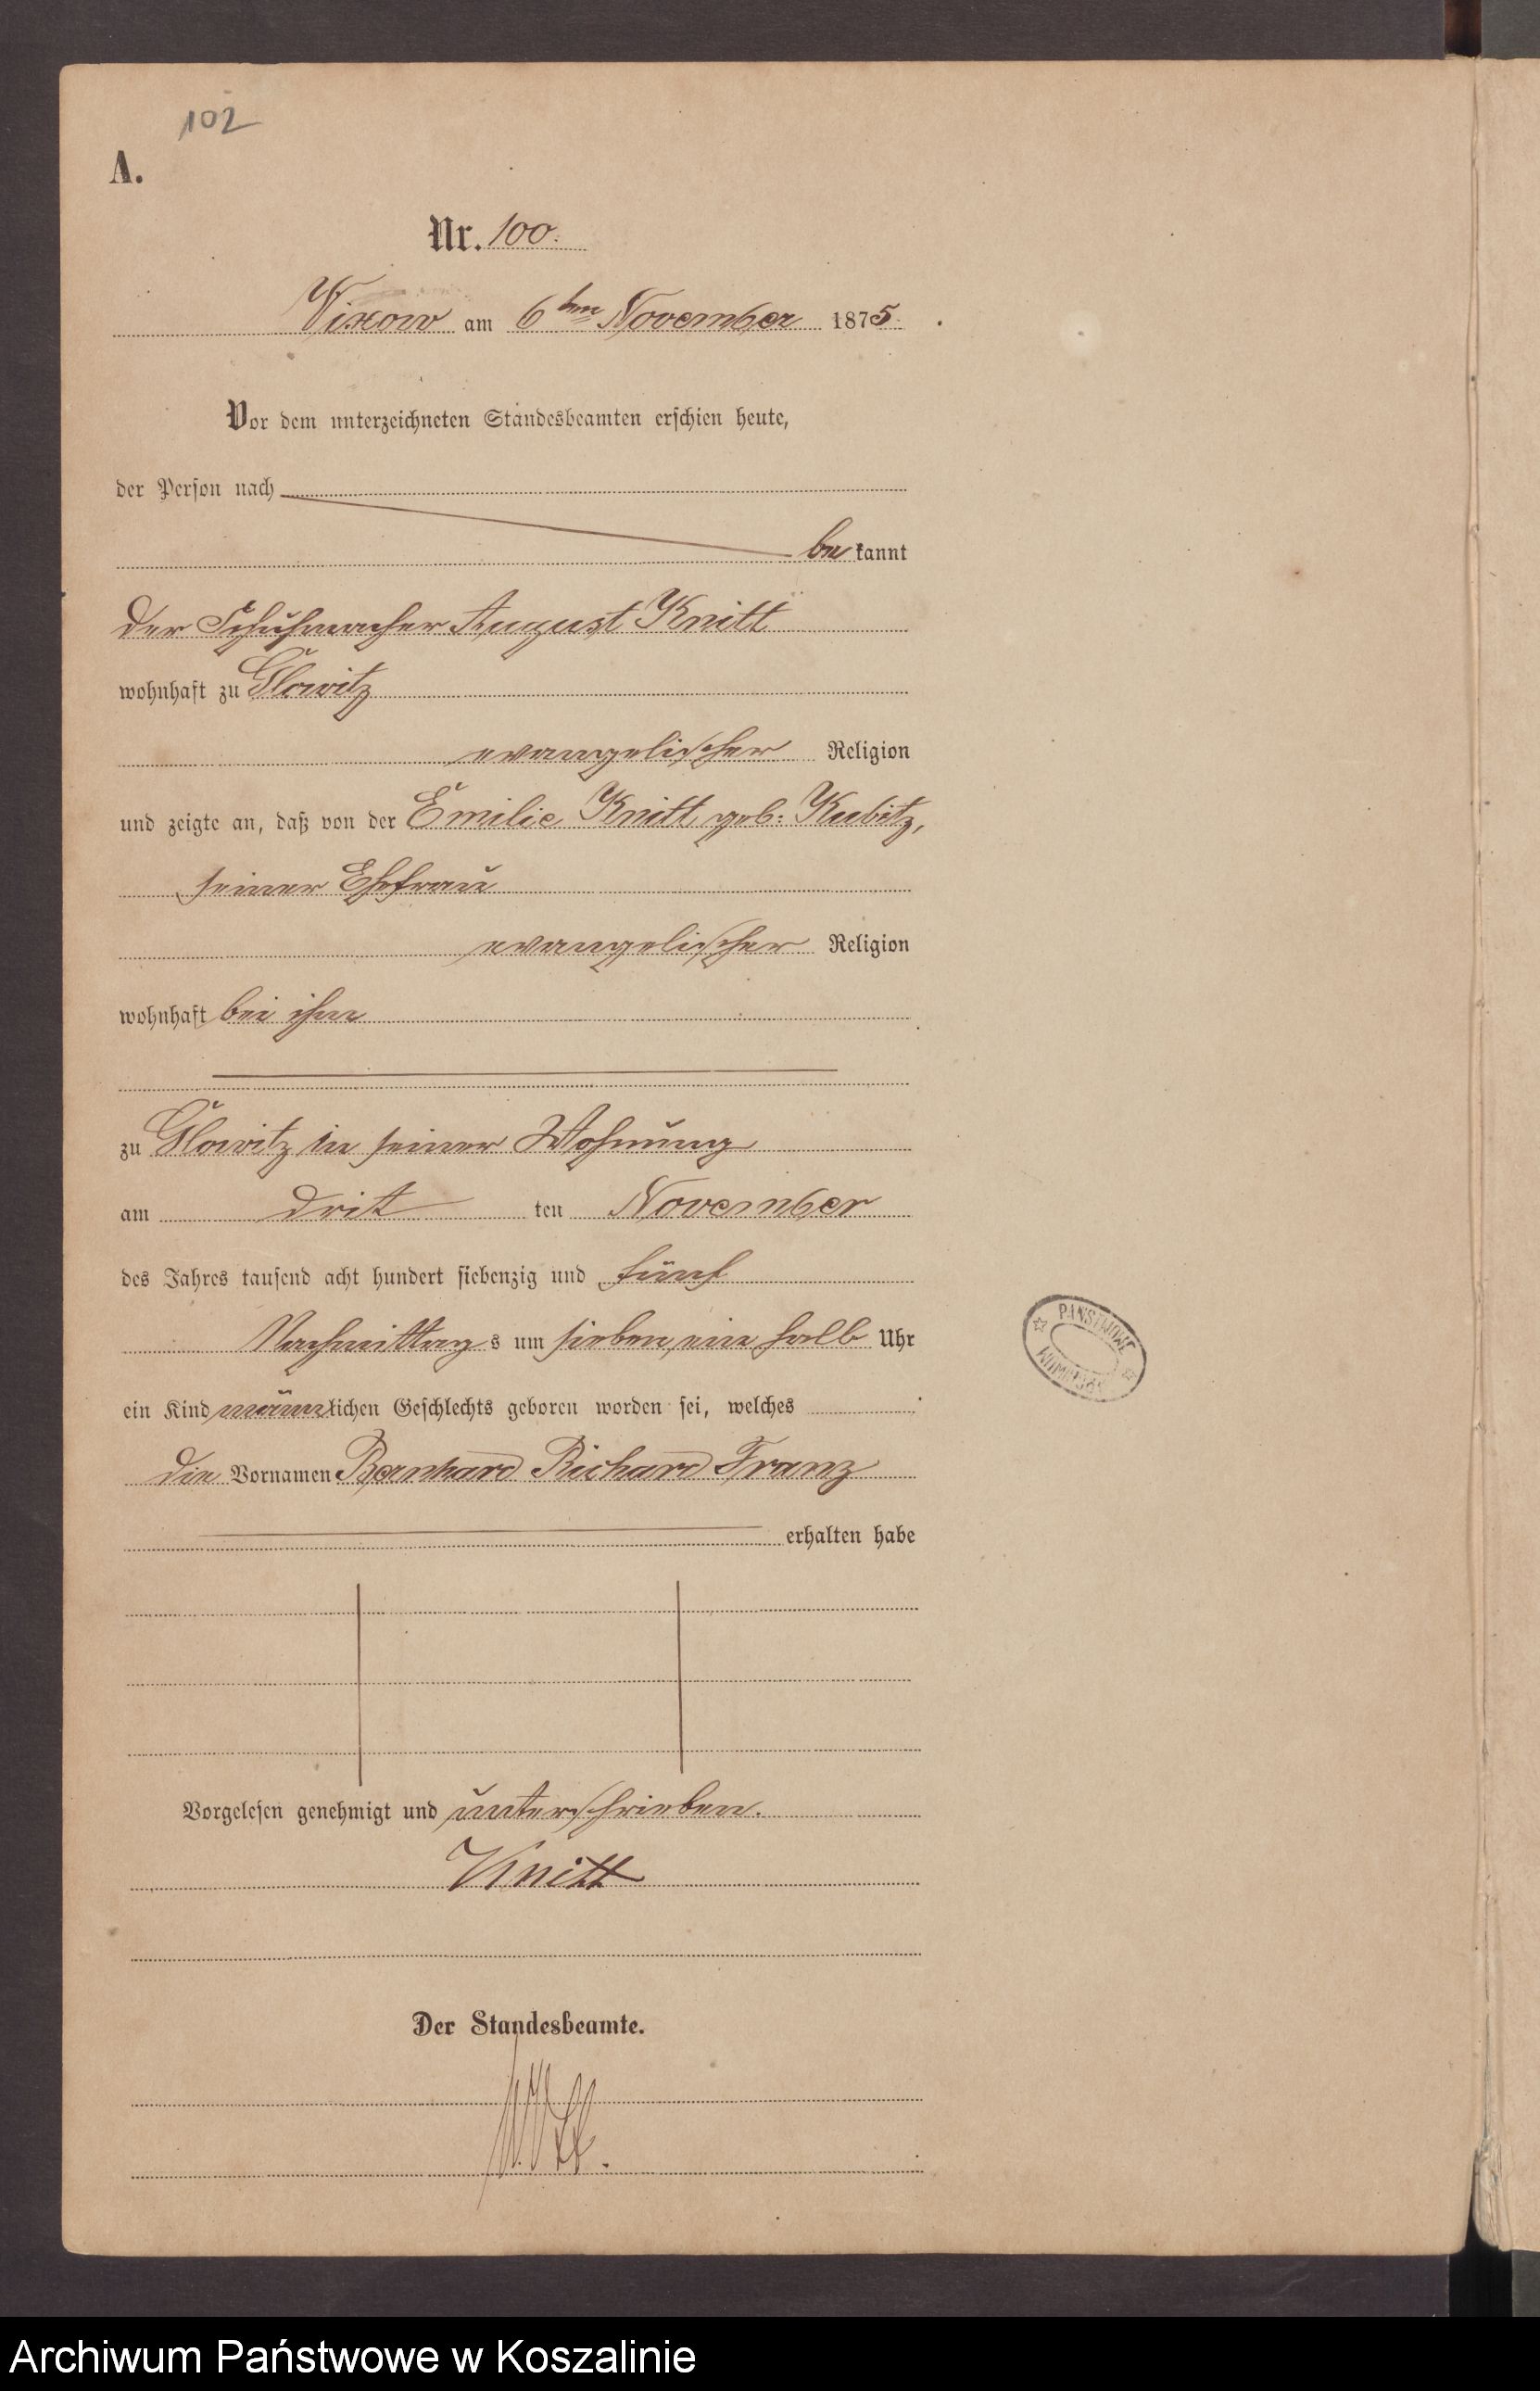 102
A.
Nr. 100.
Vixow am 6ten November 1875.
Vor dem unterzeichneten Standesbeamten erschien heute,
der Person nach
bekannt
der Schuhmacher August Knitt
wohnhaft zu Glowitz
evangelischer Religion
und zeigte an, daß von der Emilie Knitt, geb: Kubitz,
seiner Ehefrau
evangelischer Religion
wohnhaft bei ihm
zu Glowitz in seiner Wohnung
am dritten November
des Jahres tausend acht hundert siebenzig und fünf
Nachmittags um sieben, ein halb Uhr
ein Kind männlichen Geschlechts geboren worden sei, welches
die Vornamen Bernhard Richard Franz
erhalten habe
Vorgelesen genehmigt und unterschrieben.
Knitt
Der Standesbeamte.
PAŃSTWOWE
ARCHIWUM
Archiwum Państwowe w Koszalinie